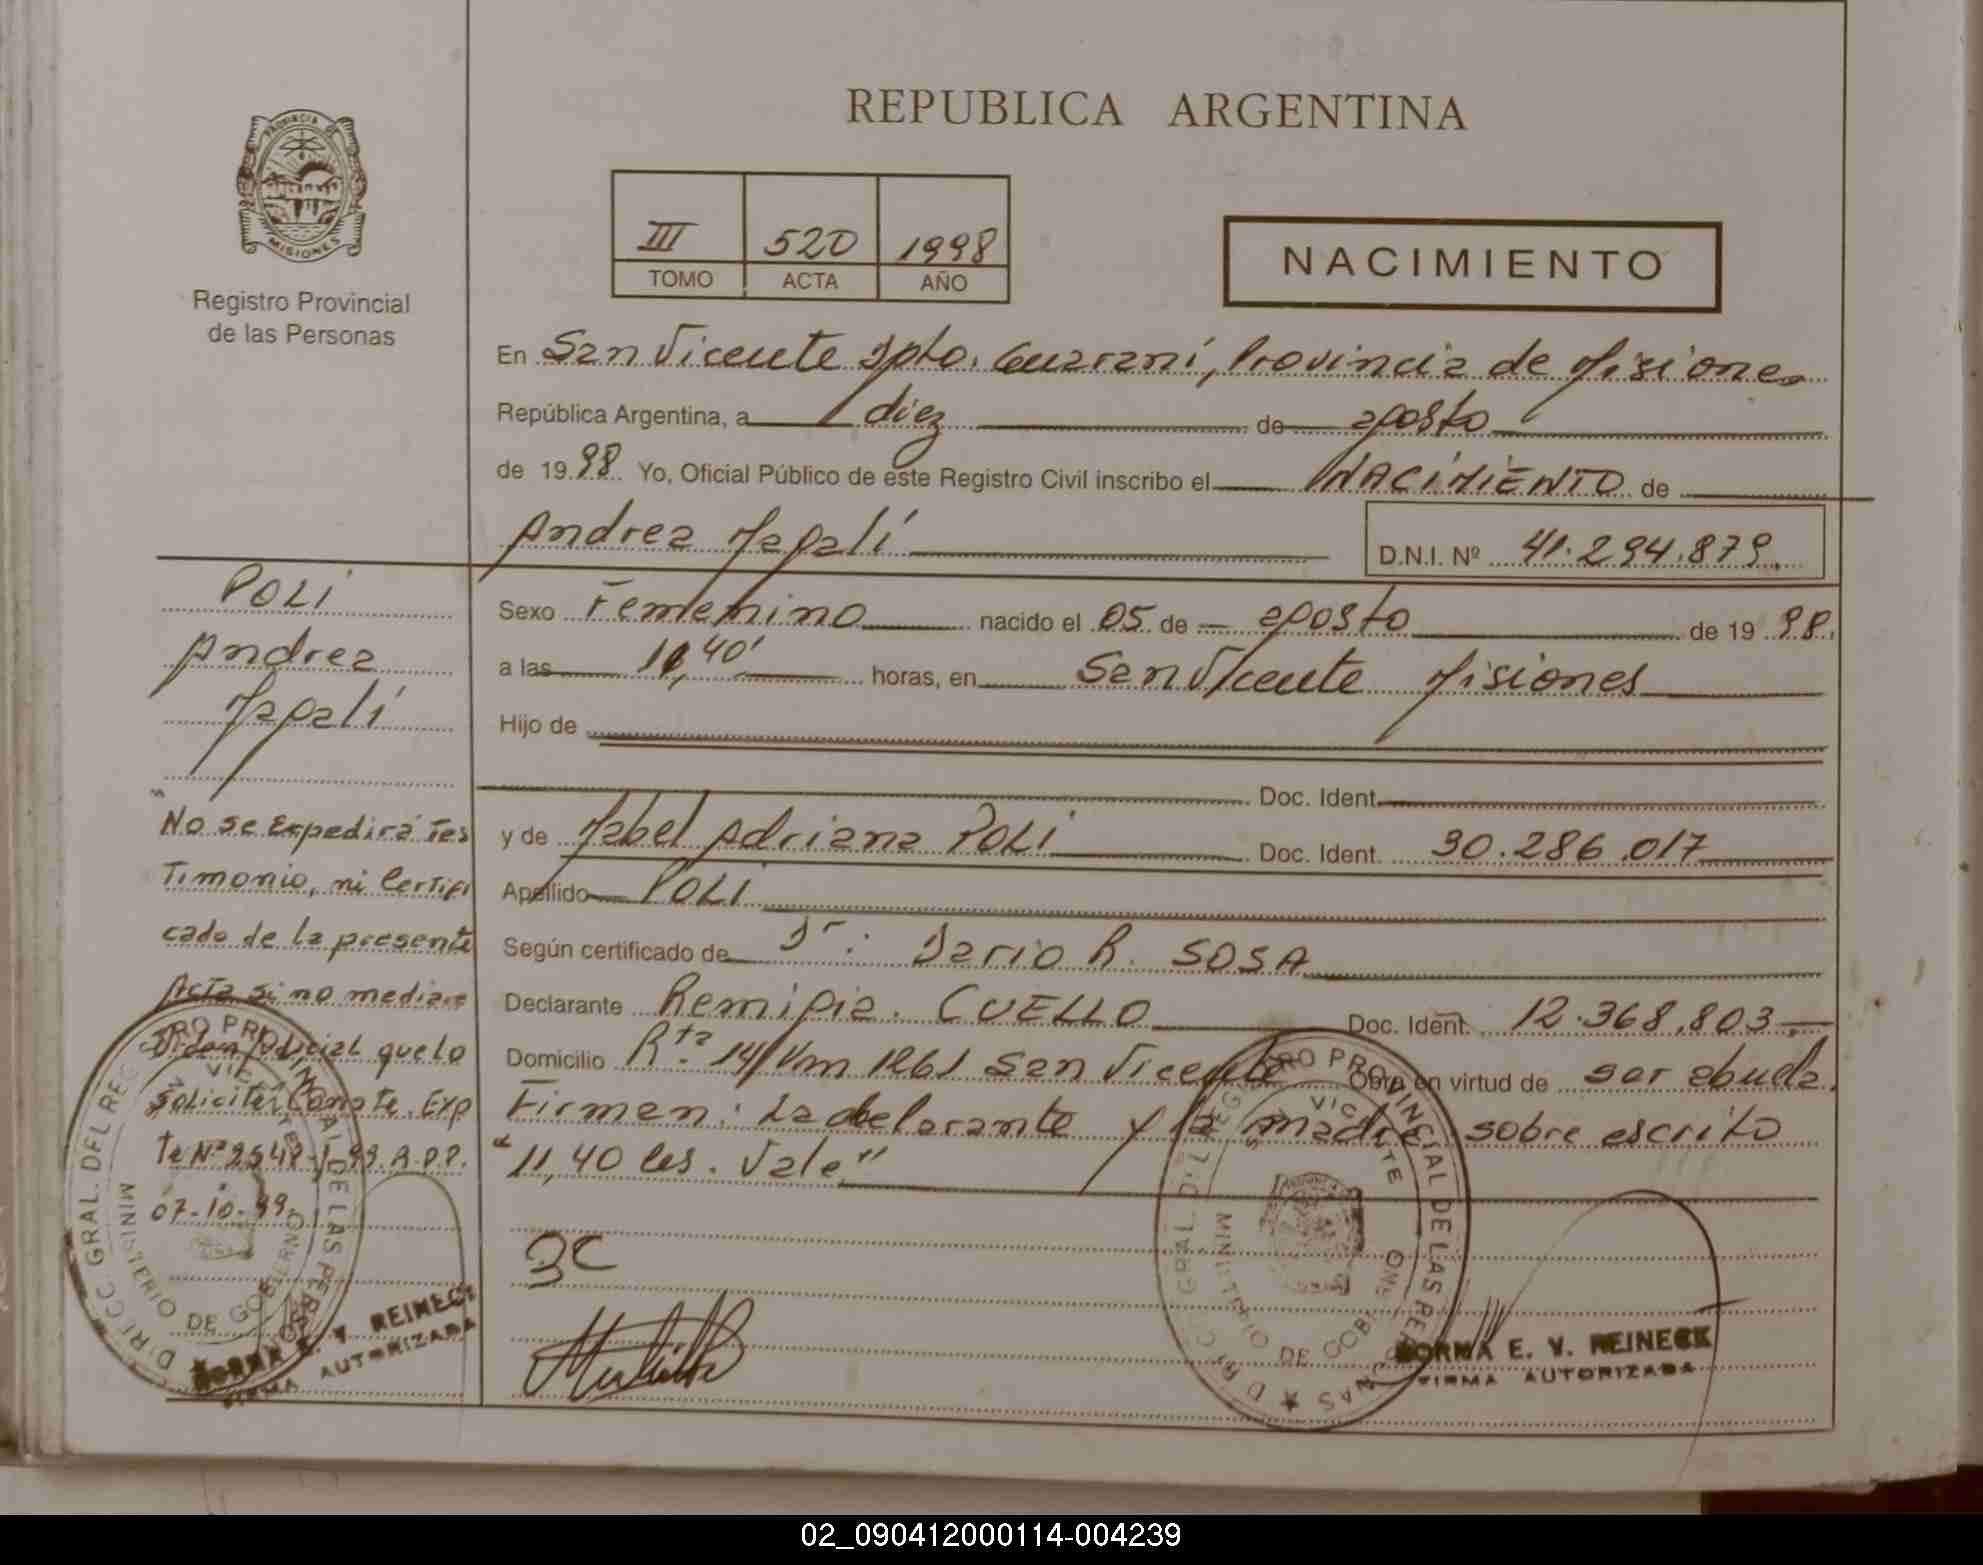 REPUBLICA ARGENTINA
PROVINCIA DE
MISIONES
Registro Provincial
de las Personas
III 520 1998
TOMO ACTA AÑO
NACIMIENTO
En San Vicente Dpto. Guaraní, Provincia de Misiones
República Argentina, a diez de agosto
de 1998. Yo, Oficial Público de este Registro Civil inscribo el NACIMIENTO de
Andrea Magalí D.N.I. Nº 41.294.879.
Sexo Femenino nacido el 05 de agosto de 1998.
a las 11,40' horas, en San Vicente Misiones
Hijo de
Doc. Ident.
y de Mabel Adriana POLI Doc. Ident. 30.286.017
Apellido POLI
Según certificado de Dr: Dario R. SOSA
Declarante Remigia. CUELLO Doc. Ident. 12.368.803.
Domicilio Rta. 14 Km 1261 San Vicente Obra en virtud de ser abuela.
Firman: La declarante y la madre, sobre escrito
"11,40 hs. Vale"
POLI
Andrea
Magalí
"No se Expedirá Tes
Timonio, ni Certifi
cado de la presente
Acta si no mediare
Orden Judicial que lo
Solicite, Conste. Exp
te Nº 2548-1-99. R.P.P.
07-10-99.
DIRECC. GRAL. DEL REGISTRO PROVINCIAL DE LAS PERSONAS
SAN VICENTE
MINISTERIO DE GOBIERNO
NORMA E. V. REINECK
FIRMA AUTORIZADA
RC
DIRECC. GRAL. DEL REGISTRO PROVINCIAL DE LAS PERSONAS
SAN VICENTE
MINISTERIO DE GOBIERNO
NORMA E. V. REINECK
FIRMA AUTORIZADA
02_090412000114-004239